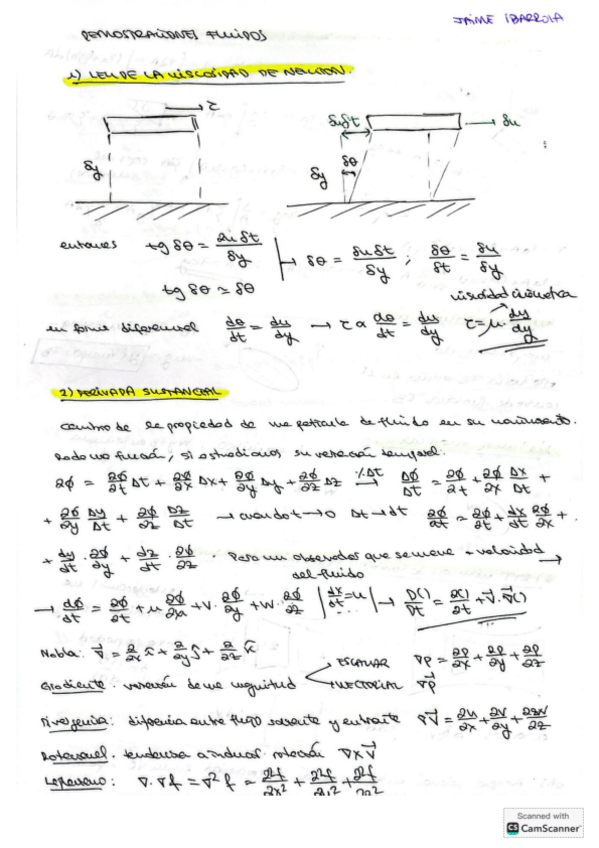 JAIME IBARROLA
DEMOSTRACIONES FLUIDOS
1) LEY DE LA VISCOSIDAD DE NEWTON.
τ
δuδt
δu
δy
δθ
δy
entonces tg δθ = δu δt / δy → δθ = δu δt / δy ; δθ/δt = δu/δy
tg δθ ≃ δθ
viscosidad
en forma diferencial dθ/dt = du/dy → τ α dθ/dt = du/dy τ = μ · du/dy
2) DERIVADA SUSTANCIAL
de la propiedad de una partícula de fluido en su movimiento.
función, si estudiamos su variación temporal.
∂ϕ = ∂ϕ/∂t Δt + ∂ϕ/∂x Δx + ∂ϕ/∂y Δy + ∂ϕ/∂z Dz %Δt → Dϕ/Δt = ∂ϕ/∂t + ∂ϕ/∂x Dx/Δt +
+ ∂ϕ/∂y Dy/Δt + ∂ϕ/∂z Dz/Δt → cuando t → 0 Δt → dt ∂ϕ/∂t = ∂ϕ/∂t + dx/dt ∂ϕ/∂x +
+ dy/dt · ∂ϕ/∂y + dz/dt · ∂ϕ/∂z Para un observador que se mueve a velocidad →
del fluido
→ dϕ/dt = ∂ϕ/∂t + u ∂ϕ/∂x + v · ∂ϕ/∂y + w · ∂ϕ/∂z | dx/dt = u | → D()/Dt = ∂()/∂t + V · ∇()
Nabla: ∇ = ∂/∂x i + ∂/∂y j + ∂/∂z k
ESCALAR ∇p = ∂p/∂x + ∂p/∂y + ∂p/∂z
Gradiente: variación de una magnitud
VECTORIAL ∇p
Divergencia: diferencia entre flujo saliente y entrante ∇V = ∂u/∂x + ∂v/∂y + ∂w/∂z
Rotacional: tendencia a inducir rotación ∇xV
Laplaciano: ∇ · ∇f = ∇² f = ∂²f/∂x² + ∂²f/∂y² + ∂²f/∂z²
Scanned with
CS CamScanner